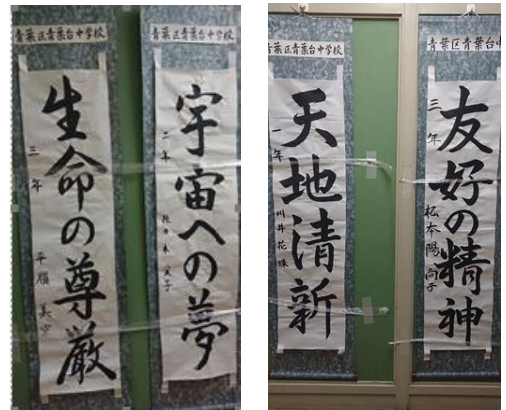 青葉区青葉台中学校
生命の尊厳
三年
青葉区青葉台中学校
宇宙への夢
二年
青葉区青葉台中学校
天地清新
一年
川井花珠
青葉区青葉台中
友好の精神
三年
松本陽向子